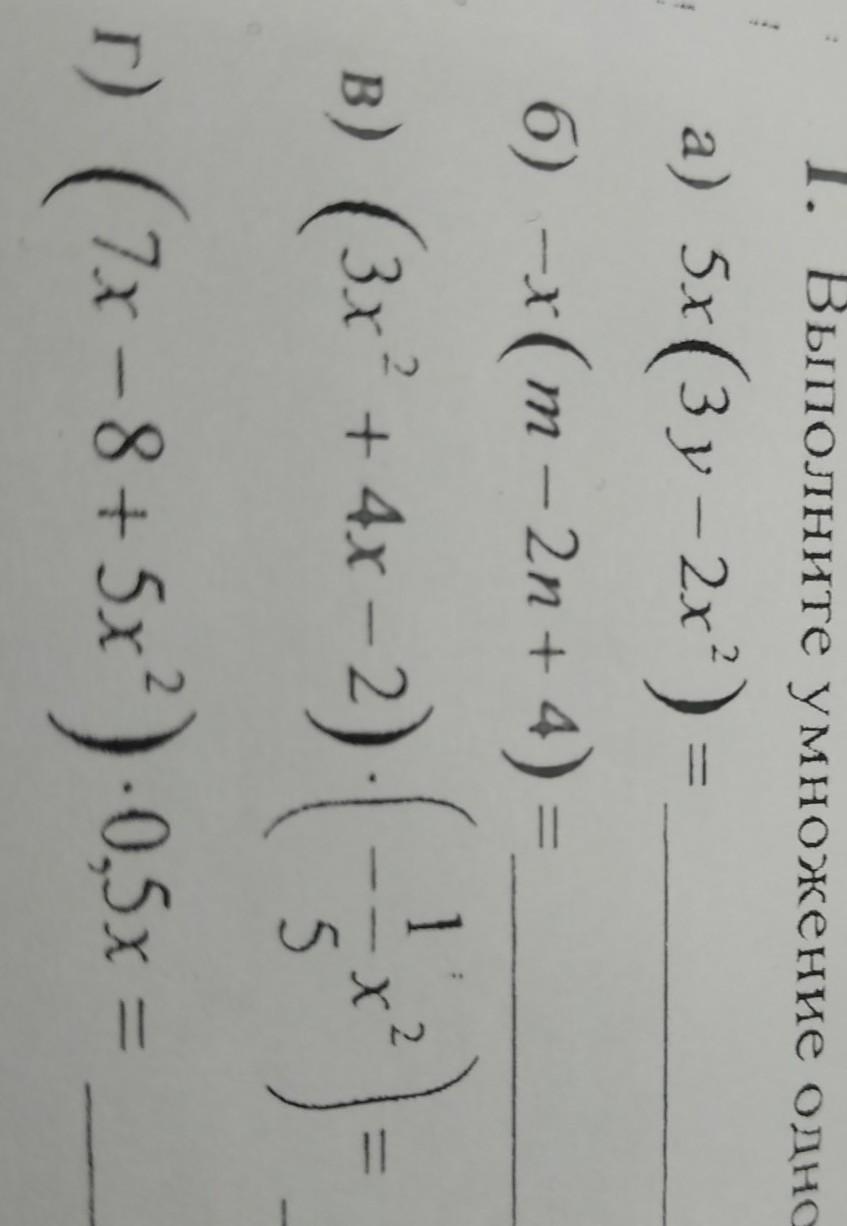 1. Выполните умножение одно
а) 5x(3y − 2x²) =
б) −x(m − 2n + 4) =
в) (3x² + 4x − 2) · (−1/5 x²) =
г) (7x − 8 + 5x²) · 0,5x =